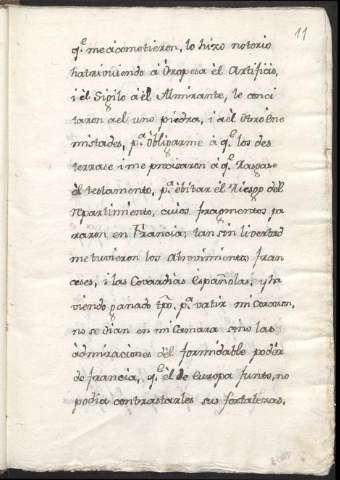 11
q.e me acometieron, lo hizo notorio
hatrivuiendo à Oropesa èl Artificio,
i èl Sigilo à èl Almirante, le conci
taron a el uno piedra, i a èl otro ene
mistades, p.a òbligarme à q.e los des
terrase i me precisaron à q.e Rasgase
èl testamento, p.a èbitar èl Riesgo dèl
repartimiento, cuios fragmentos pa
raron en Francia; tan sin libertad
me tuvieron los atrevimientos Fran
ceses, i las Covardias Españolas, y ha
viendo ganado tpo. p.a vatir mi Corazon,
no se oian en mi Camara sino las
àdmiraciones dèl formidable podèr
de francia, q.e èl de Europa junto, no
podia contrastarles sus fortalezas,